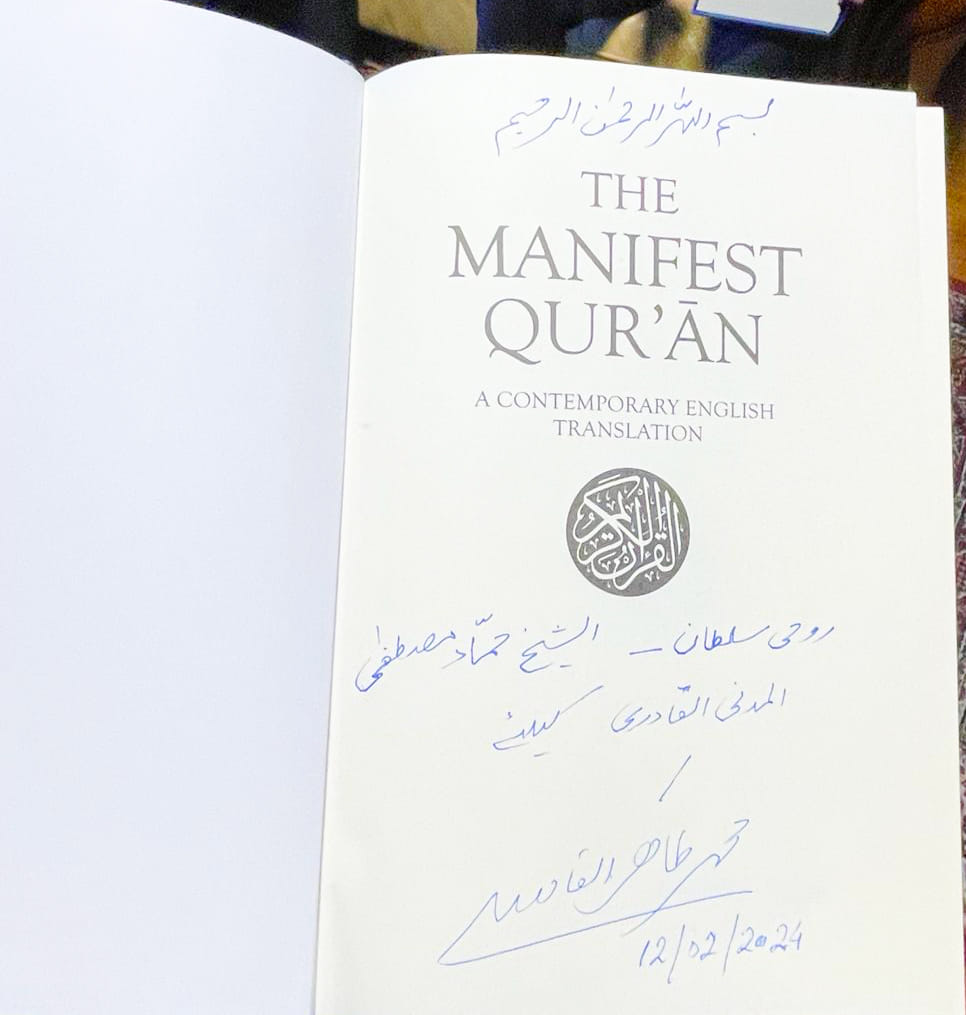 بسم الله الرحمٰن الرحیم
THE
MANIFEST
QUR’ĀN
A CONTEMPORARY ENGLISH
TRANSLATION
القرآن الكريم
روحی سلطان – الشیخ حمّاد مصطفیٰ
المدنی القادری کیلئے
محمد طاہر القادری
12/02/2024